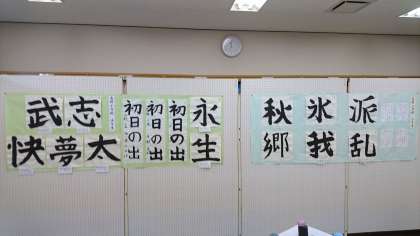 武志
快夢太
初日の出
初日の出
初日の出
永
生
秋氷派
郷我乱